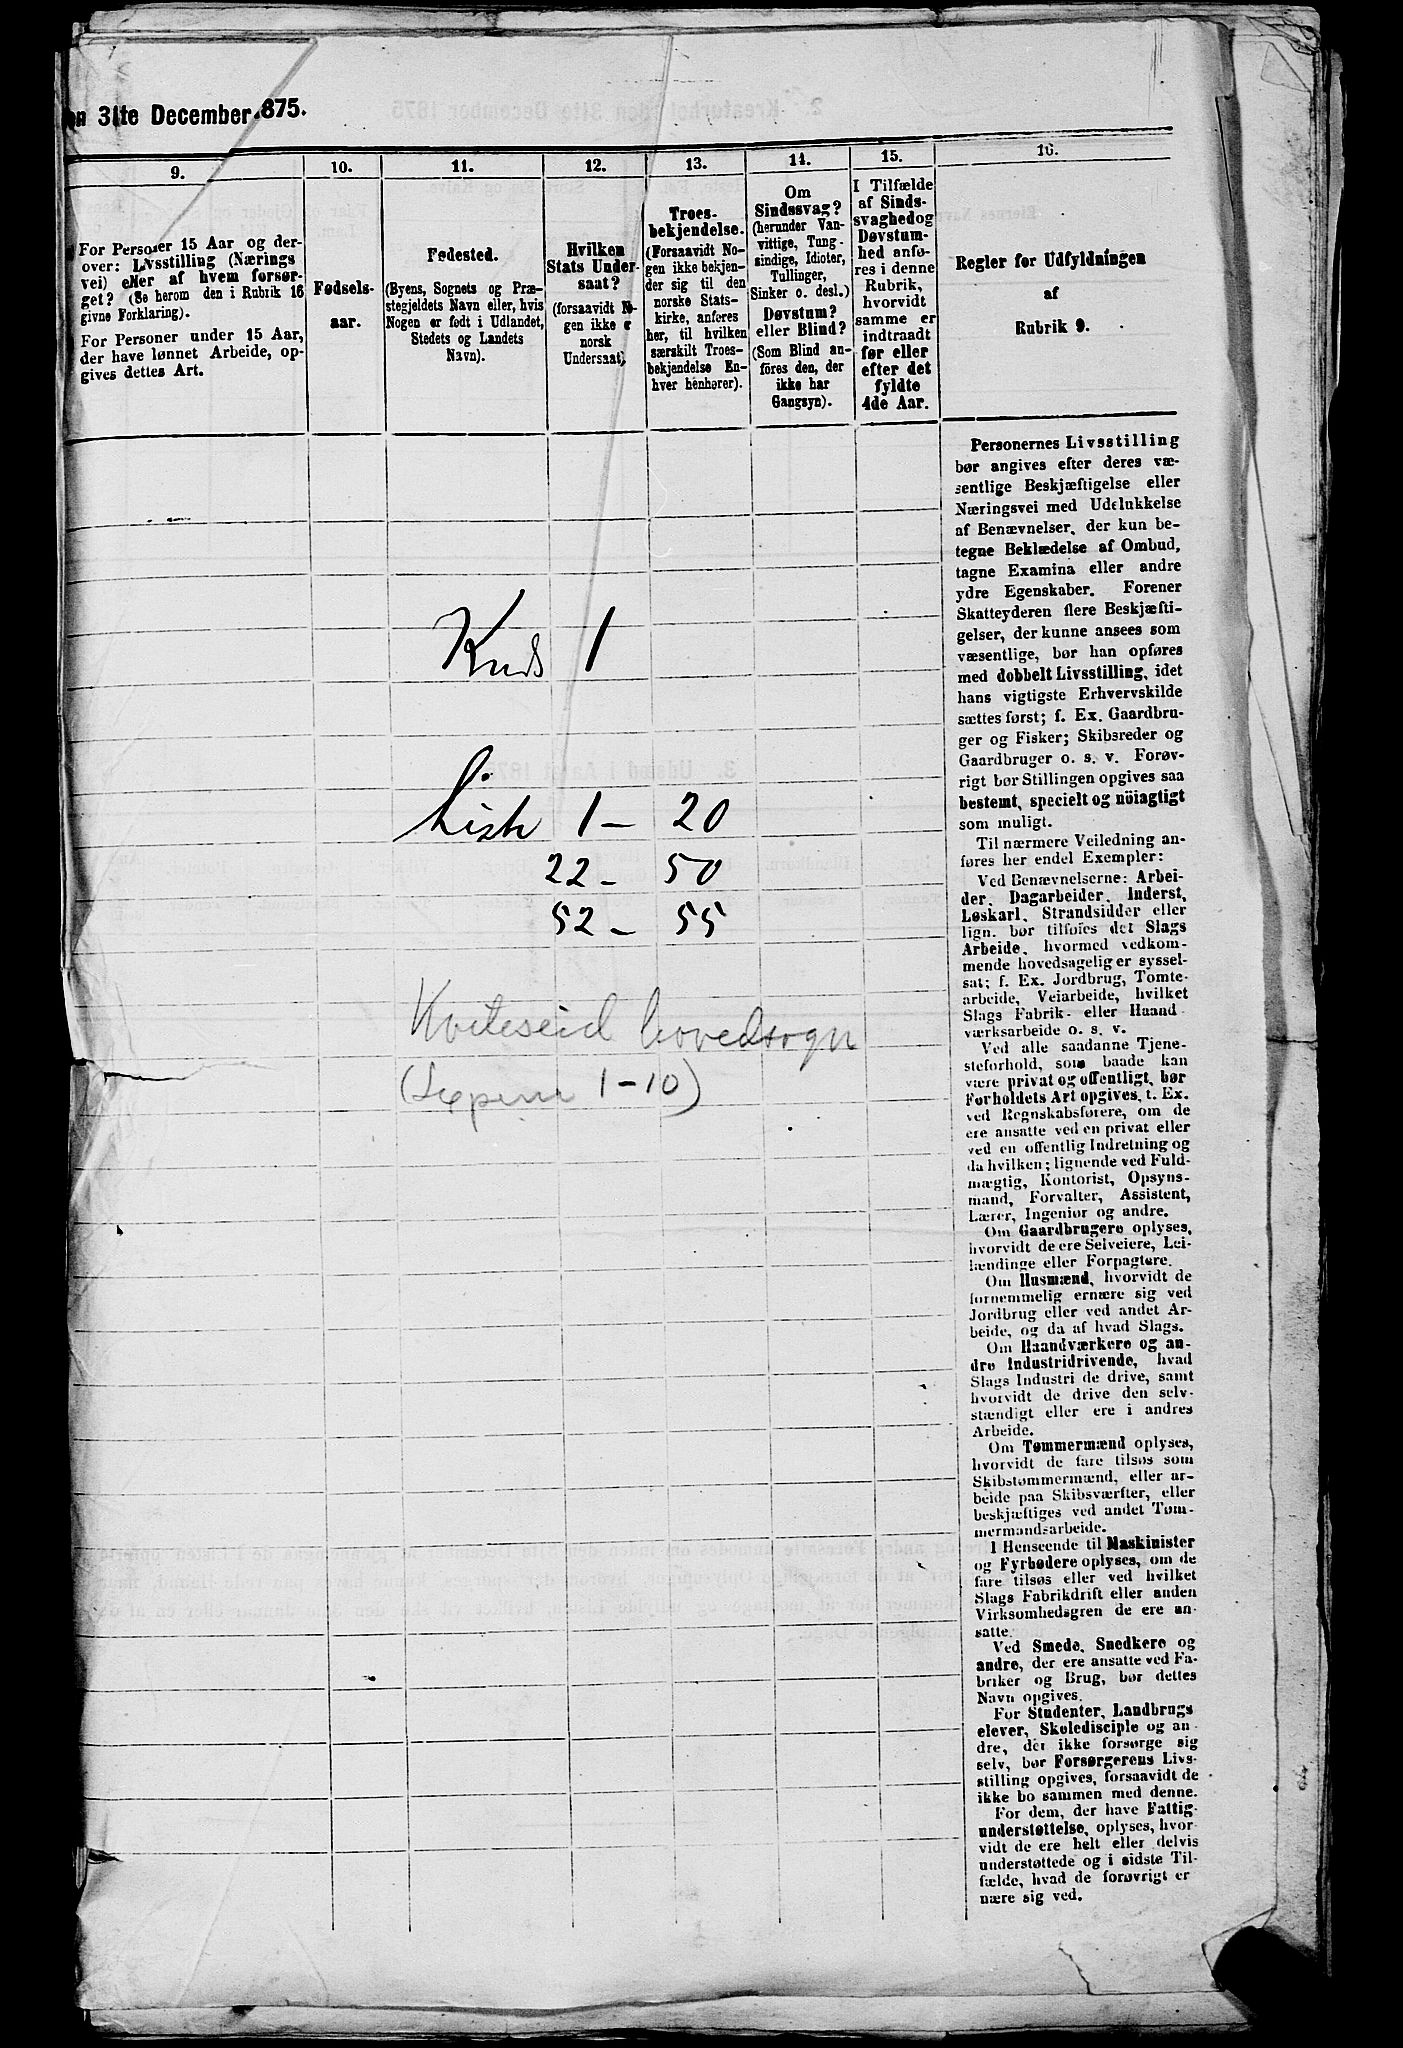 n 31te December 1875.
9.
For Personer 15 Aar og der-
over: Livsstilling (Nærings
vei) eller af hvem forsør-
get? (Se herom den i Rubrik 16
givne Forklaring).
For Personer under 15 Aar,
der have lønnet Arbeide, op-
gives dettes Art.
10.
Fødsels-
aar.
11.
Fødested.
(Byens, Sognets og Præ-
stegjeldets Navn eller, hvis
Nogen er født i Udlandet,
Stedets og Landets
Navn).
12.
Hvilken
Stats Under-
saat?
(forsaavidt No-
gen ikke er
norsk
Undersaat)
13.
Troes-
bekjendelse.
(Forsaavidt No-
gen ikke bekjen-
der sig til den
norske Stats-
kirke, anføres
her, til hvilken
særskilt Troes-
bekjendelse En-
hver henhører).
14.
Om
Sindssvag?
(herunder Van-
vittige, Tung-
sindige, Idioter,
Tullinger,
Sinker o. desl.)
Døvstum?
eller Blind?
(Som Blind an-
føres den, der
ikke har
Gangsyn).
15.
I Tilfælde
af Sinds-
svaghed og
Døvstum-
hed anfø-
res i denne
Rubrik,
hvorvidt
samme er
indtraadt
før eller
efter det
fyldte
4de Aar.
16.
Regler for Udfyldningen
af
Rubrik 9.
Personernes Livsstilling
bør angives efter deres væ-
sentlige Beskjæftigelse eller
Næringsvei med Udelukkelse
af Benævnelser, der kun be-
tegne Beklædelse af Ombud,
tagne Examina eller andre
ydre Egenskaber. Forener
Skatteyderen flere Beskjæfti-
gelser, der kunne ansees som
væsentlige, bør han opføres
med dobbelt Livsstilling, idet
hans vigtigste Erhvervskilde
sættes først; f. Ex. Gaardbru-
ger og Fisker; Skibsreder og
Gaardbruger o. s. v. Forøv-
rigt bør Stillingen opgives saa
bestemt, specielt og nöiagtigt
som muligt.
Til nærmere Veiledning an-
føres her endel Exempler:
Ved Benævnelserne: Arbei-
der, Dagarbeider, Inderst,
Løskarl, Strandsidder eller
lign. bør tilføies det Slags
Arbeide, hvormed vedkom-
mende hovedsagelig er syssel-
sat; f. Ex. Jordbrug, Tomte-
arbeide, Veiarbeide, hvilket
Slags Fabrik- eller Haand
værksarbeide o. s. v.
Ved alle saadanne Tjene-
steforhold, som baade kan
være privat og offentligt, bør
Forholdets Art opgives, t. Ex.
ved Regnskabsførere, om de
ere ansatte ved en privat eller
ved en offentlig Indretning og
da hvilken; lignende ved Fuld-
mægtig, Kontorist, Opsyns-
mand, Forvalter, Assistent,
Lærer, Ingeniør og andre.
Om Gaardbrugere oplyses,
hvorvidt de ere Selveiere, Lei-
lændinge eller Forpagtere.
Om Husmænd, hvorvidt de
fornemmelig ernære sig ved
Jordbrug eller ved andet Ar-
beide, og da af hvad Slags.
Om Haandværkere og an-
dre Industridrivende, hvad
Slags Industri de drive, samt
hvorvidt de drive den selv-
stændigt eller ere i andres
Arbeide.
Om Tømmermænd oplyses,
hvorvidt de fare tilsøs som
Skibstømmermænd, eller ar-
beide paa Skibsværfter, eller
beskjæftiges ved andet Tøm-
mermandsarbeide.
I Henseende til Maskinister
og Fyrbødere oplyses, om de
fare tilsøs eller ved hvilket
Slags Fabrikdrift eller anden
Virksomhedsgren de ere an-
satte.
Ved Smede, Snedkere og
andre, der ere ansatte ved Fa-
briker og Brug, bør dettes
Navn opgives.
For Studenter, Landbrugs
elever, Skoledisciple og an-
dre, der ikke forsørge sig
selv, bør Forsørgerens Livs-
stilling opgives, forsaavidt de
ikke bo sammen med denne.
For dem, der have Fattig-
understøttelse, oplyses, hvor-
vidt de ere helt eller delvis
understøttede og i sidste Til-
fælde, hvad de forøvrigt er
nære sig ved.
Kreds 1
Liste 1 - 20
22 - 50
52 - 55
Kviteseid hovedsogn
1-10)